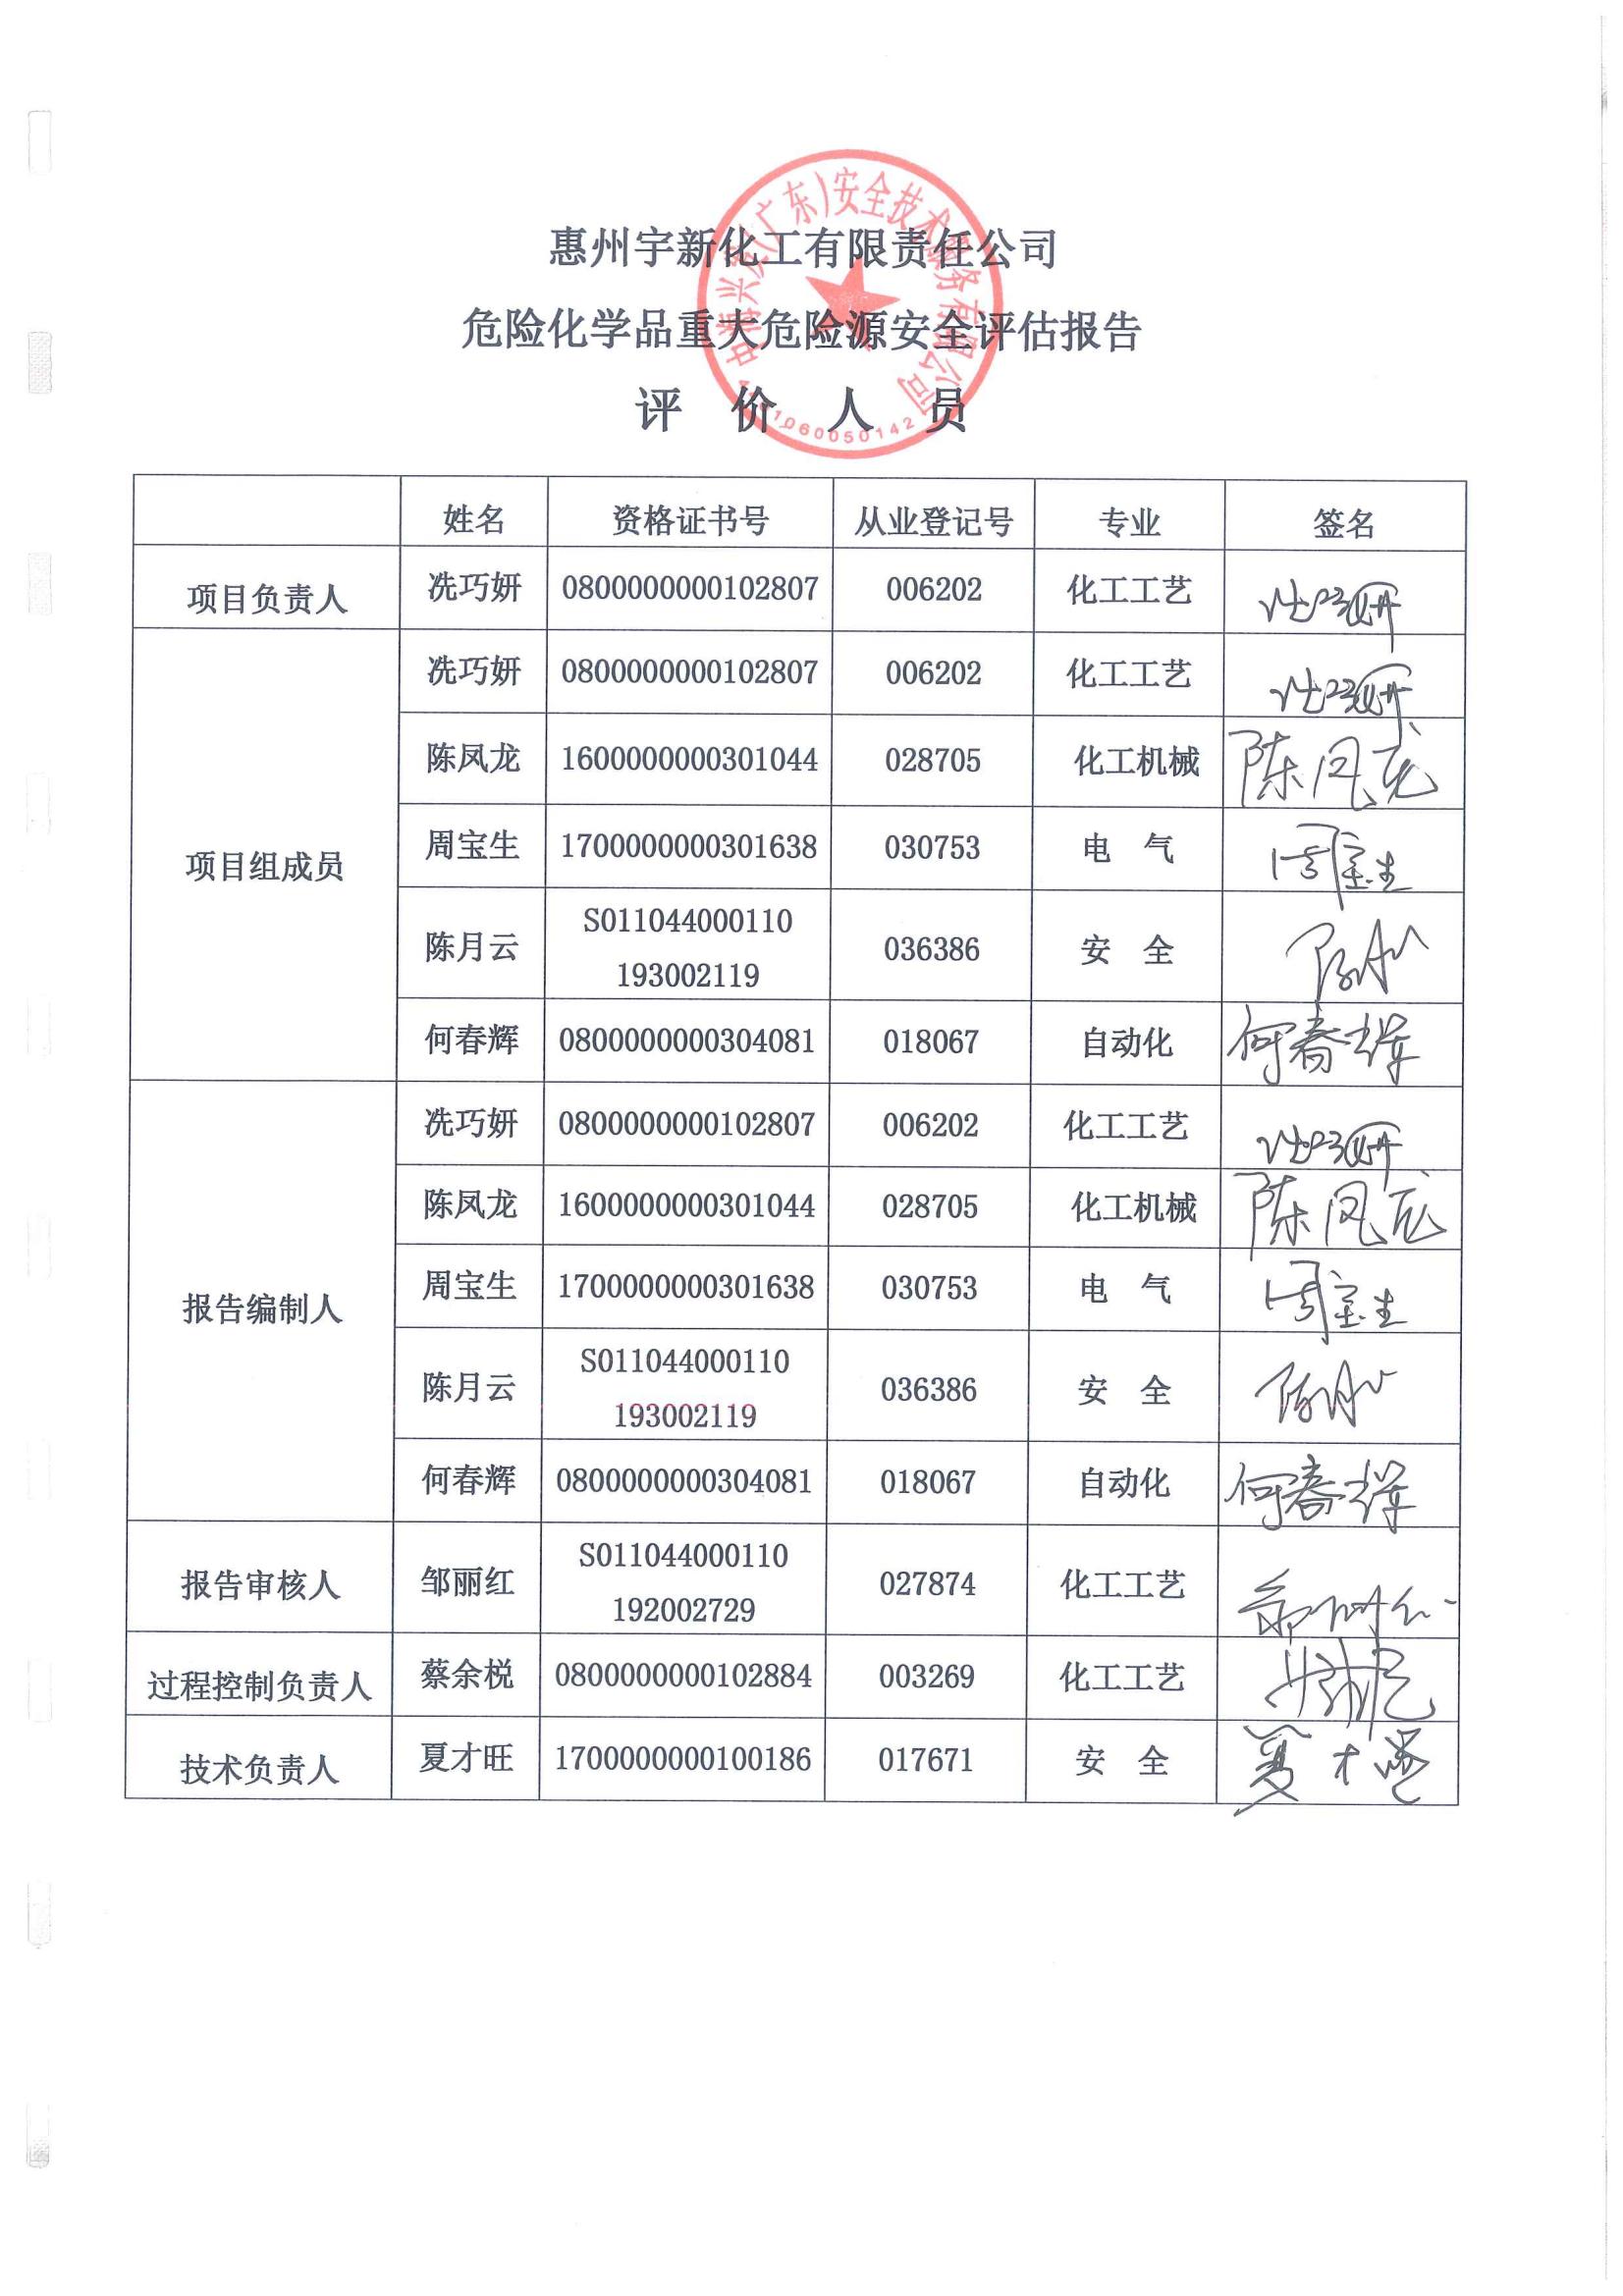 惠州宇新化工有限责任公司
危险化学品重大危险源安全评估报告
评 价 人 员
中海兴发(广东)安全技术服务有限公司
姓名 资格证书号 从业登记号 专业 签名
项目负责人 冼巧妍 0800000000102807 006202 化工工艺 冼巧妍
项目组成员 冼巧妍 0800000000102807 006202 化工工艺 冼巧妍
陈凤龙 1600000000301044 028705 化工机械 陈凤龙
周宝生 1700000000301638 030753 电 气 周宝生
陈月云 S011044000110 036386 安 全 陈月云
193002119
何春辉 0800000000304081 018067 自动化 何春辉
报告编制人 冼巧妍 0800000000102807 006202 化工工艺 冼巧妍
陈凤龙 1600000000301044 028705 化工机械 陈凤龙
周宝生 1700000000301638 030753 电 气 周宝生
陈月云 S011044000110 036386 安 全 陈月云
193002119
何春辉 0800000000304081 018067 自动化 何春辉
报告审核人 邹丽红 S011044000110 027874 化工工艺 邹丽红
192002729
过程控制负责人 蔡余棁 0800000000102884 003269 化工工艺
技术负责人 夏才旺 1700000000100186 017671 安 全 夏才旺